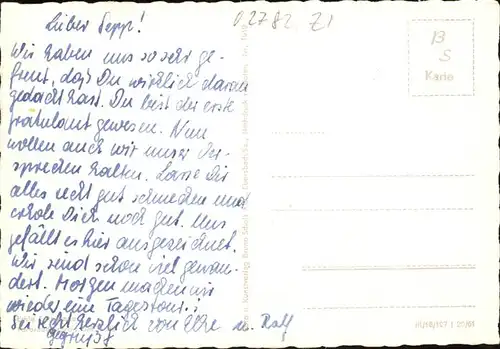 Lieber Sepp!
Wir haben uns so sehr ge-
freut, daß Du wirklich daran
gedacht hast. Du bist der erste
Gratulant gewesen. Nun
wollen auch wir unser Ver-
sprechen halten. Lasse Dir
alles recht gut schmecken und
erhole Dich noch gut. Uns
gefällt es hier ausgezeichnet.
Wir sind schon viel gewan-
dert. Morgen machen wir
wieder eine Tagestour.
Sei recht herzlich von Elke u. Ralf
gegrüßt
02782 Z1
B
S
Karte